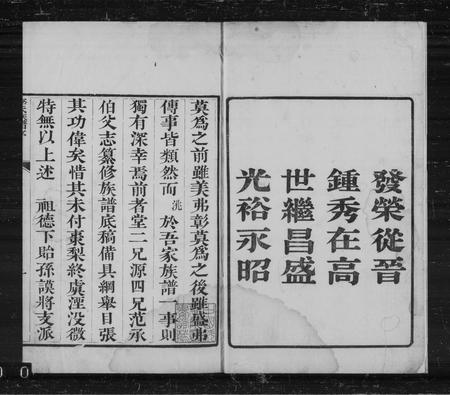 發榮從晉
鍾秀在高
世繼昌盛
光裕永昭
莫為之前雖美弗彰莫為之後雖盛弗
傳事皆類然而 洮 於吾家族譜一事則
獨有深幸焉前者堂二兄源四兄范承
伯父志纂修族譜底稿備具綱舉目張
其功偉矣惜其未付棗梨終虞湮没微
特無以上述 祖德下貽孫謨將支派